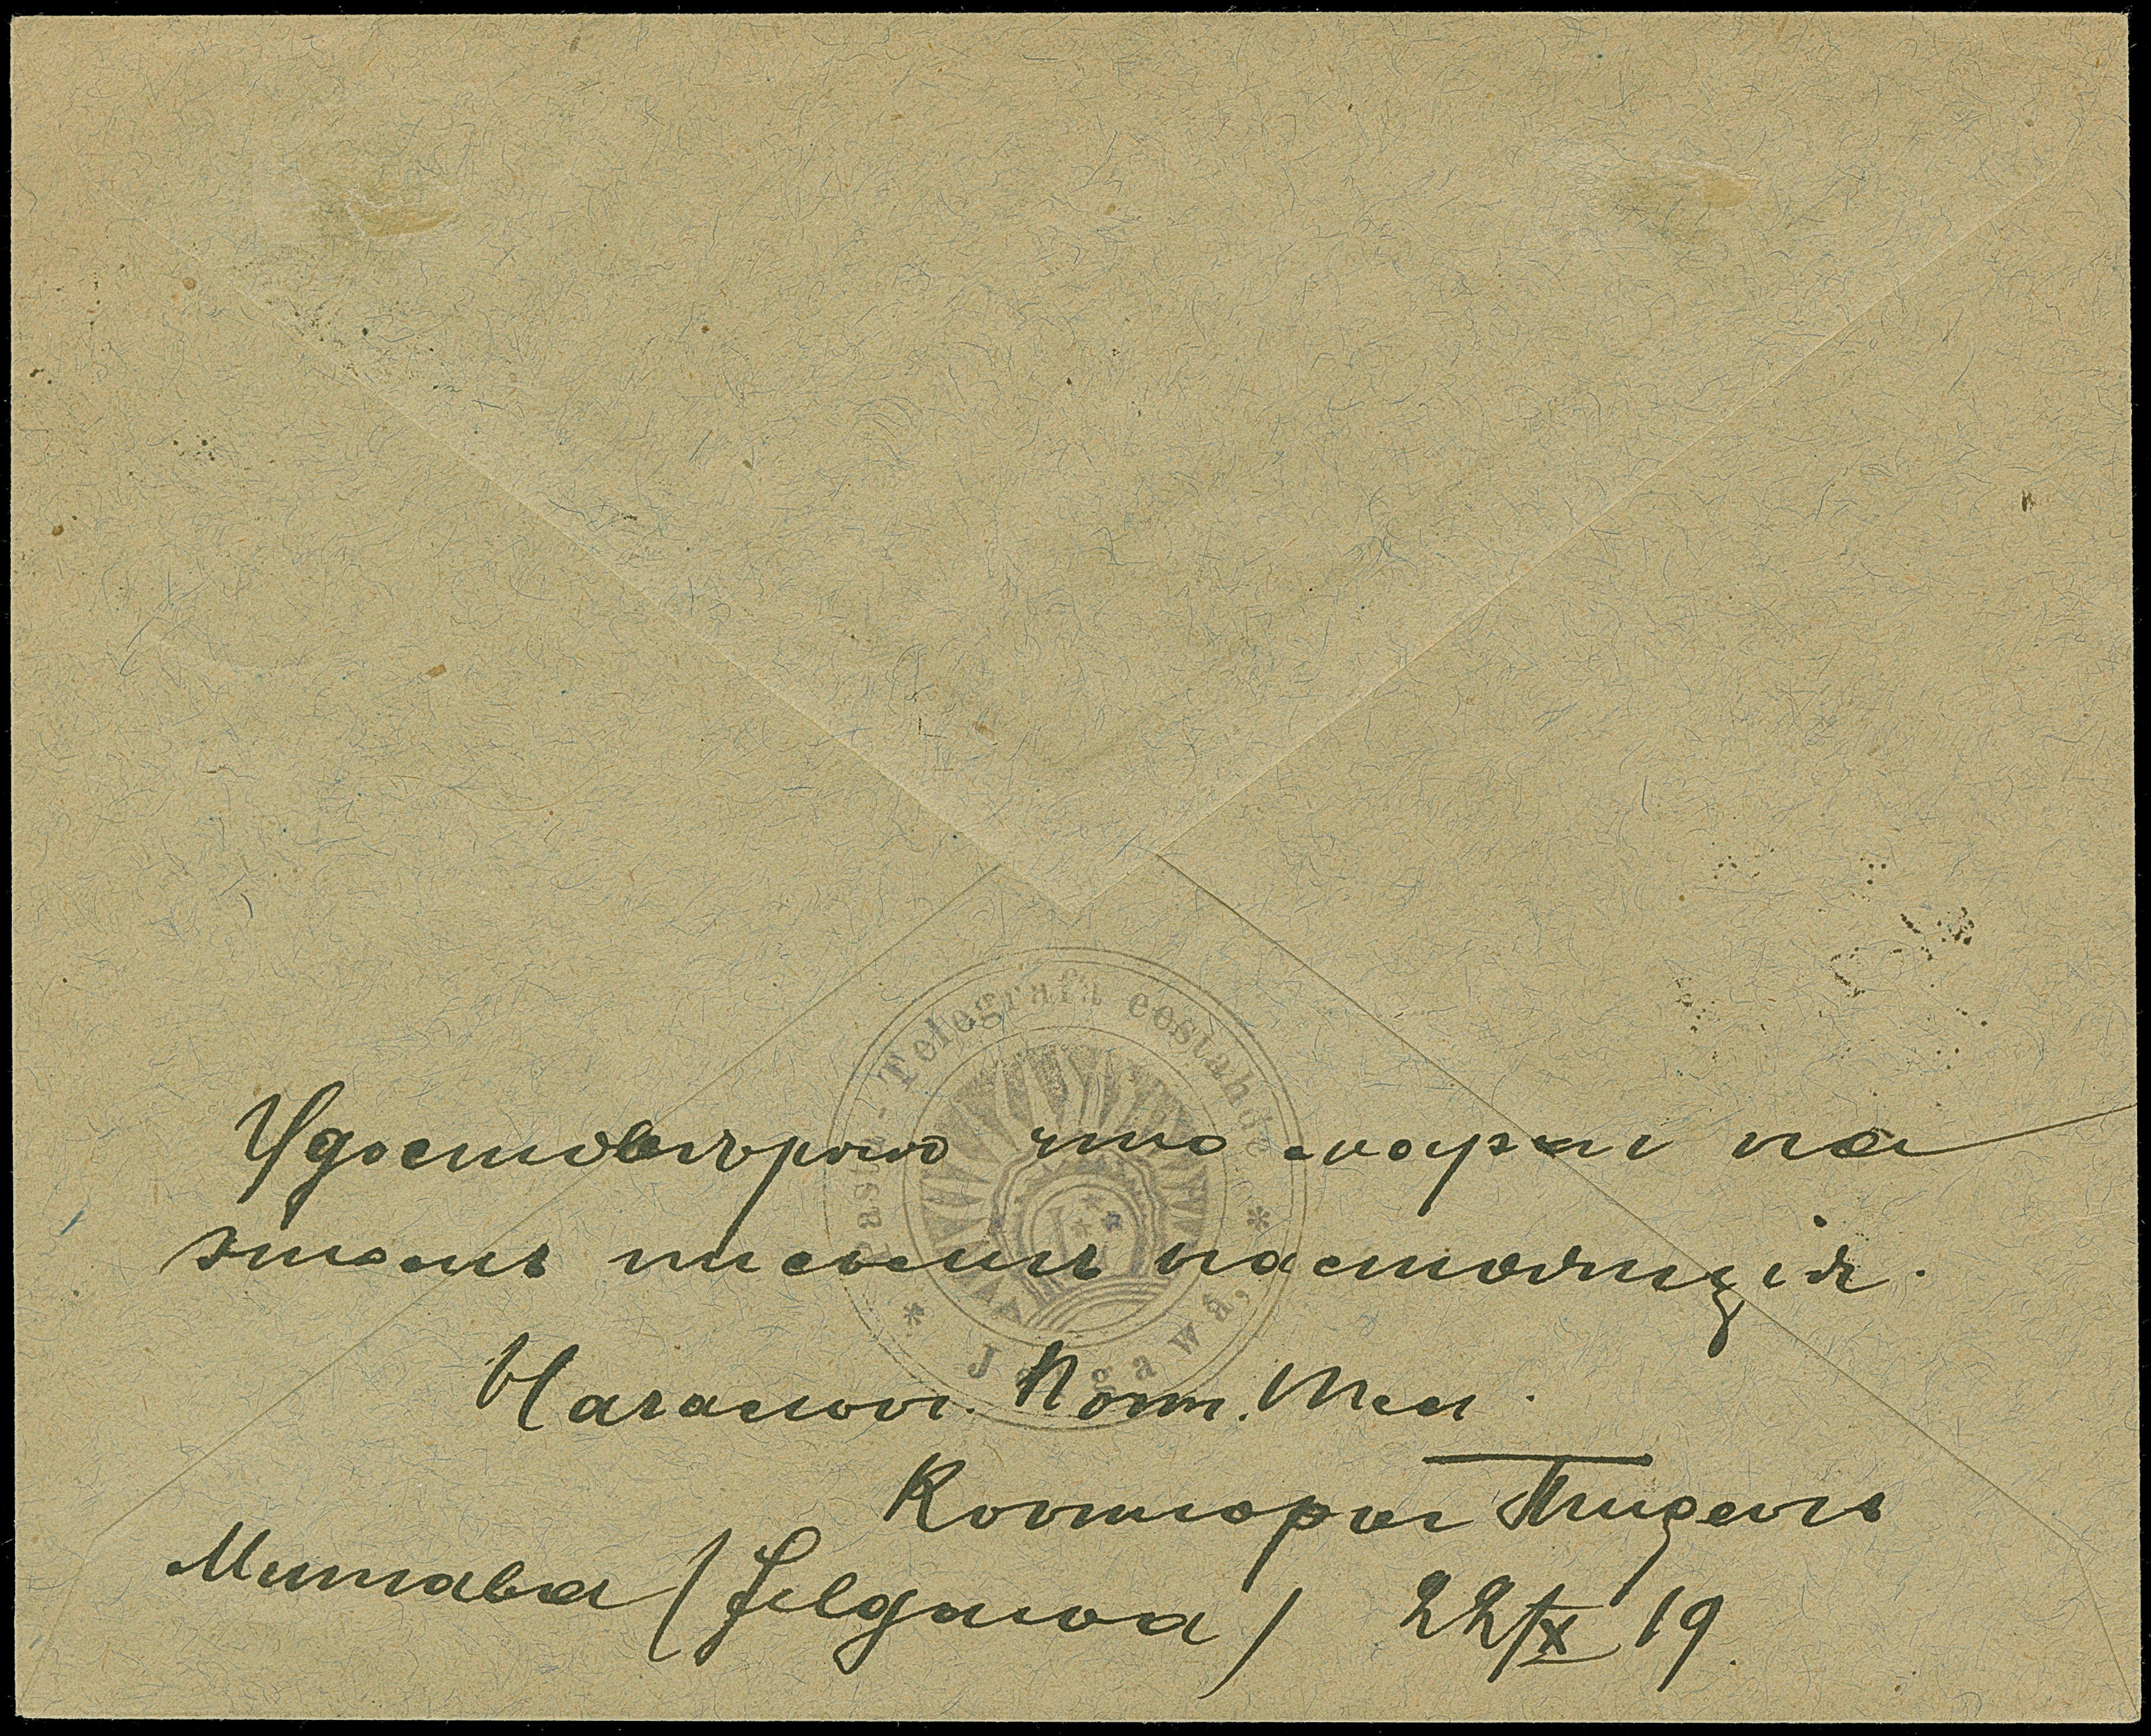 Pasta-Telegrafa eestahde
* Jelgawá, *
Удостовѣряю что марки на
этомъ письмѣ настоящія.
Начальн. Почт. Тел.
Конторы
Митава (Jelgawa) 22/X 19